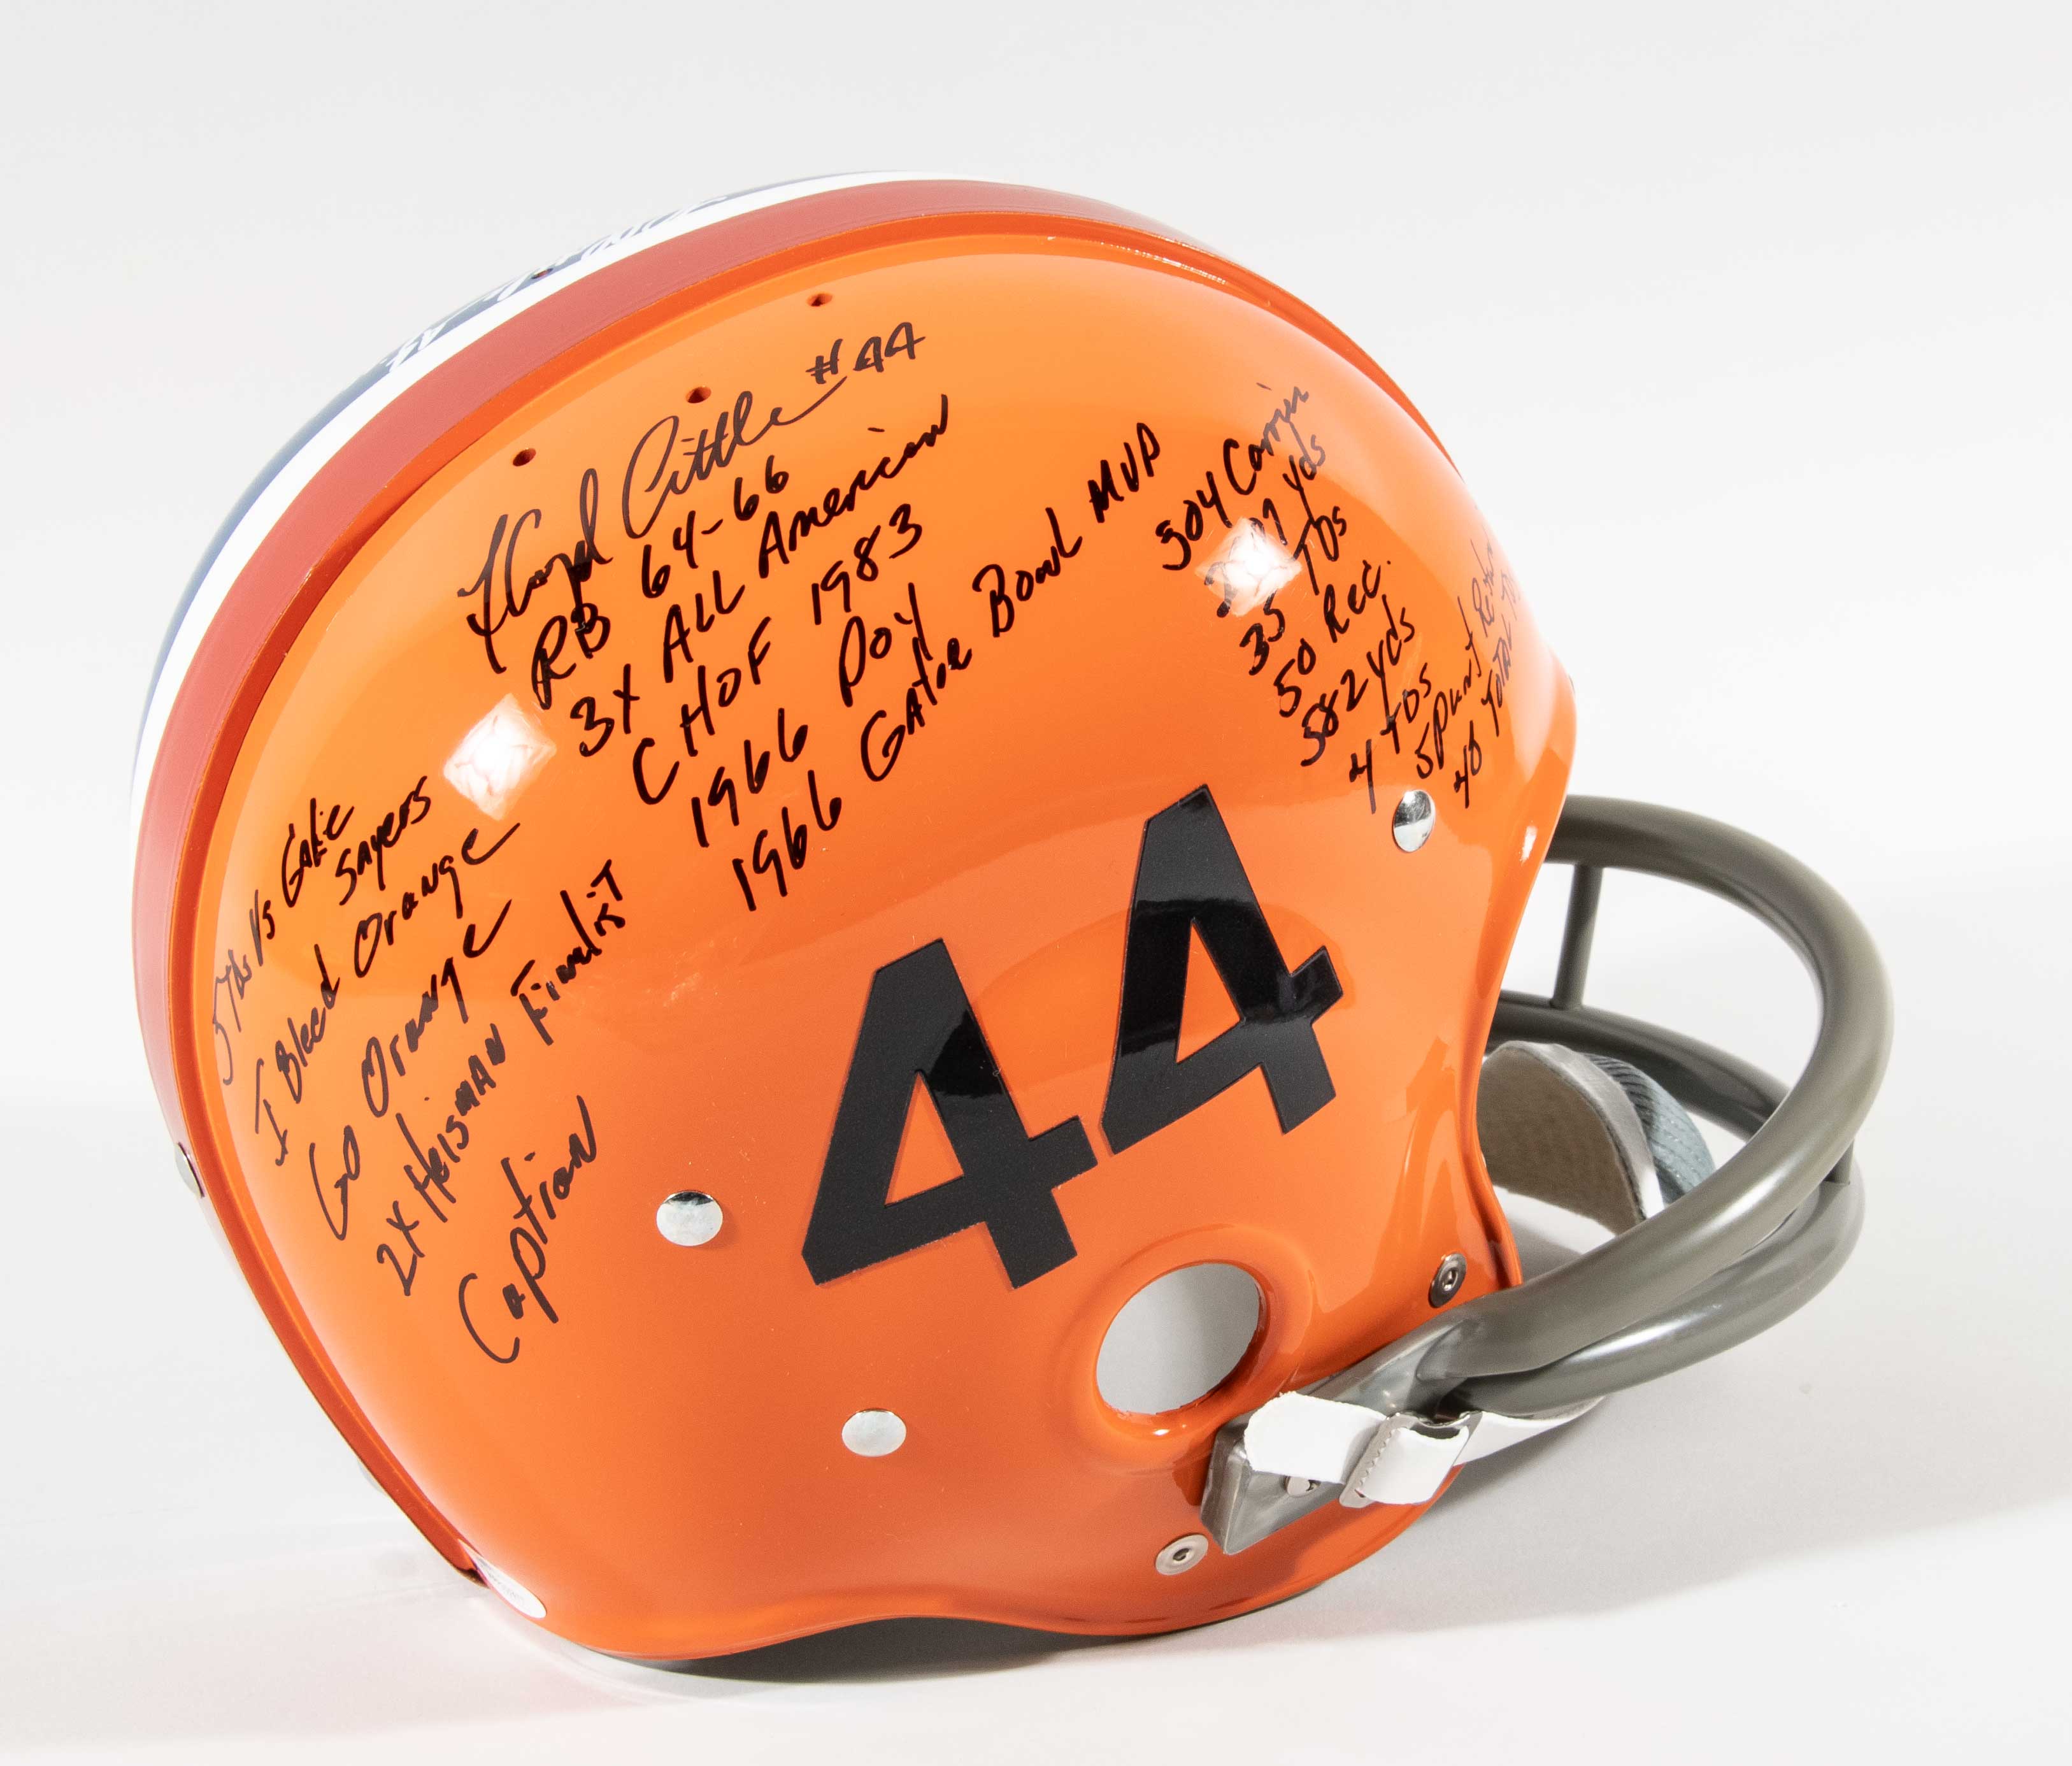 Floyd Little #44
RB 64-66
3X ALL American
CHOF 1983
1966 POY
1966 GATOR Bowl MVP
504 Carries
yds
35 TDs
50 Rec.
582 yds
4 TDs
5 Punt Return
46 Total
5 TDs Vs Gale
Sayers
I Bleed Orange
Go Orange
2X Heisman Finalist
Caption
44